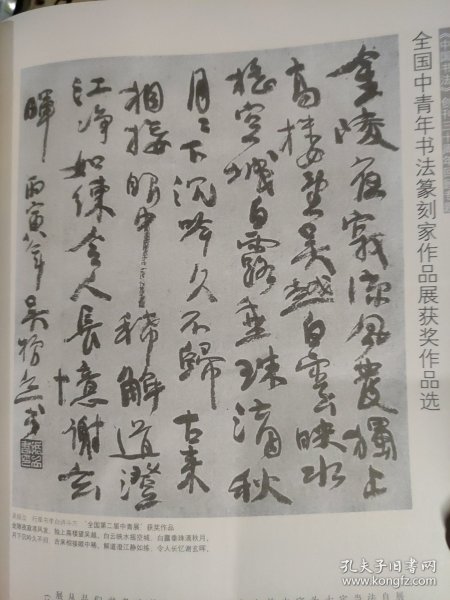 全国中青年书法篆刻家作品展获奖作品选
金陵夜寂凉風發獨上
高樓望吳越白雲映水
摇空城白露垂珠滴秋
月〻下沉吟久不歸古来
相接眼中稀解道澄
江净如練令人長憶謝玄
暉 丙寅年吴振立书
吴振立 行草书李白诗斗方 “全国第二届中青展”获奖作品
金陵夜寂凉风发，独上高楼望吴越。白云映水摇空城，白露垂珠滴秋月。
月下沉吟久不归，古来相接眼中稀。解道澄江净如练，令人长忆谢玄晖。
孔夫子旧书网